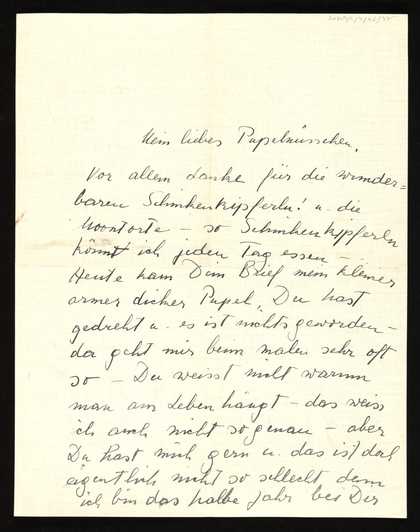 Mein liebes Pupelnüsschen,
Vor allem danke für die wunder=
baren Schinkenkipferln! u. die
Moontorte – so Schinkenkipferln
könnt ich jeden Tag essen –
Heute kam Dein Brief mein kleiner
armer dicker Pupel, Du hast
gedreht u. es ist nichts geworden –
da geht mir beim malen sehr oft
so – Du weisst nicht warum
man am Leben hängt – das weiss
ich auch nicht so genau – aber
Du hast mich gern u. das ist doch
eigentlich nicht so schlecht denn
ich bin das halbe Jahr bei Dir